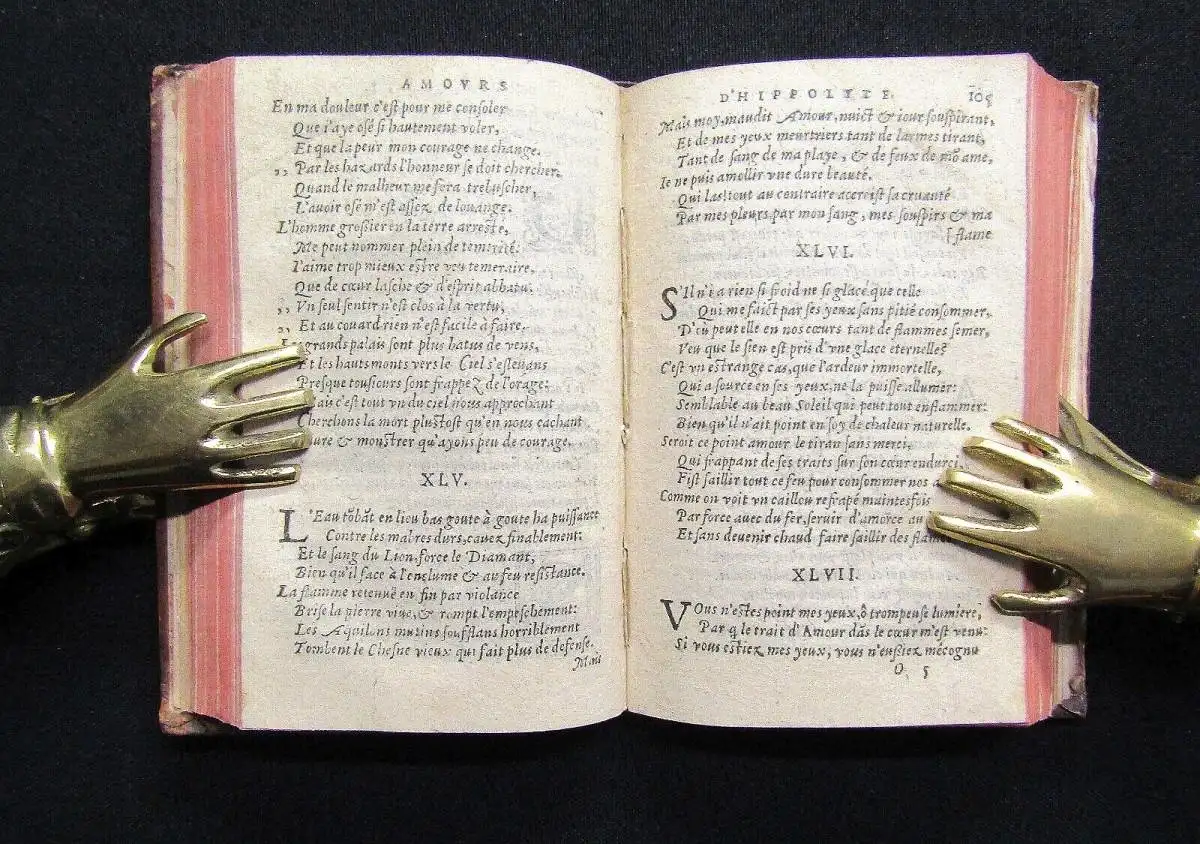 AMOVRS
En ma douleur c'est pour me consoler
Que i'aye osé si hautement voler,
Et que la peur mon courage ne change.
,, Par les hazards l'honneur se doit chercher:
Quand le malheur me fera trebuscher,
L'auoir osé m'est assez de louange.
L'homme grossier en la terre arresté,
Me peut nommer plein de temerité:
I'aime trop mieux estre veu temeraire,
Que de cœur lasche & d'esprit abbatu:
,, Vn seul sentir n'est clos à la vertu,
,, Et au couard rien n'est facile à faire.
grands palais sont plus batus de vens,
Et les hauts monts vers le Ciel s'esleuans
Presque tousiours sont frappez de l'orage:
c'est tout vn du ciel nous approchant
Cherchons la mort plustost qu'en nous cachant
& monstrer qu'ayons peu de courage.
XLV.
L'Eau tõbãt en lieu bas goute à goute ha puissance
Contre les marbres durs, cauez finablement:
Et le sang du Lion, force le Diamant,
Bien qu'il face à l'enclume & au feu resistance.
La flamme retenuë en fin par violance
Brise la pierre viue, & rompt l'empeschement:
Les Aquilons mutins soufflans horriblement
Tombent le Chesne vieux qui fait plus de defense.
Mais
D'HIPPOLYTE. 105
Mais moy, maudit Amour, nuict & iour souspirant,
Et de mes yeux meurtriers tant de larmes tirant,
Tant de sang de ma playe, & de feux de mõ ame,
Ie ne puis amollir vne dure beauté.
Qui las! tout au contraire accroist sa cruauté
Par mes pleurs par mon sang, mes souspirs & ma
[flame
XLVI.
S'Il n'i a rien si froid ne si glacé que celle
Qui me faict par ses yeux sans pitié consommer,
D'où peut elle en nos cœurs tant de flammes semer,
Veu que le sien est pris d'vne glace eternelle?
C'est vn estrange cas, que l'ardeur immortelle,
Qui a source en ses yeux, ne la puisse allumer:
Semblable au beau Soleil qui peut tout enflammer:
Bien qu'il n'ait point en soy de chaleur naturelle.
Seroit ce point amour le tiran sans merci,
Qui frappant de ses traits sur son cœur endurci,
Fist saillir tout ce feu pour consommer nos
Comme on voit vn caillou refrapé maintesfois
Par force auec du fer, seruir d'amorce au
Et sans deuenir chaud faire saillir des
XLVII.
VOus n'estes point mes yeux, ô trompeuse lumiere,
Par q le trait d'Amour dãs le cœur m'est venu:
Si vous estiez mes yeux, vous n'eussiez mécognu
O 5